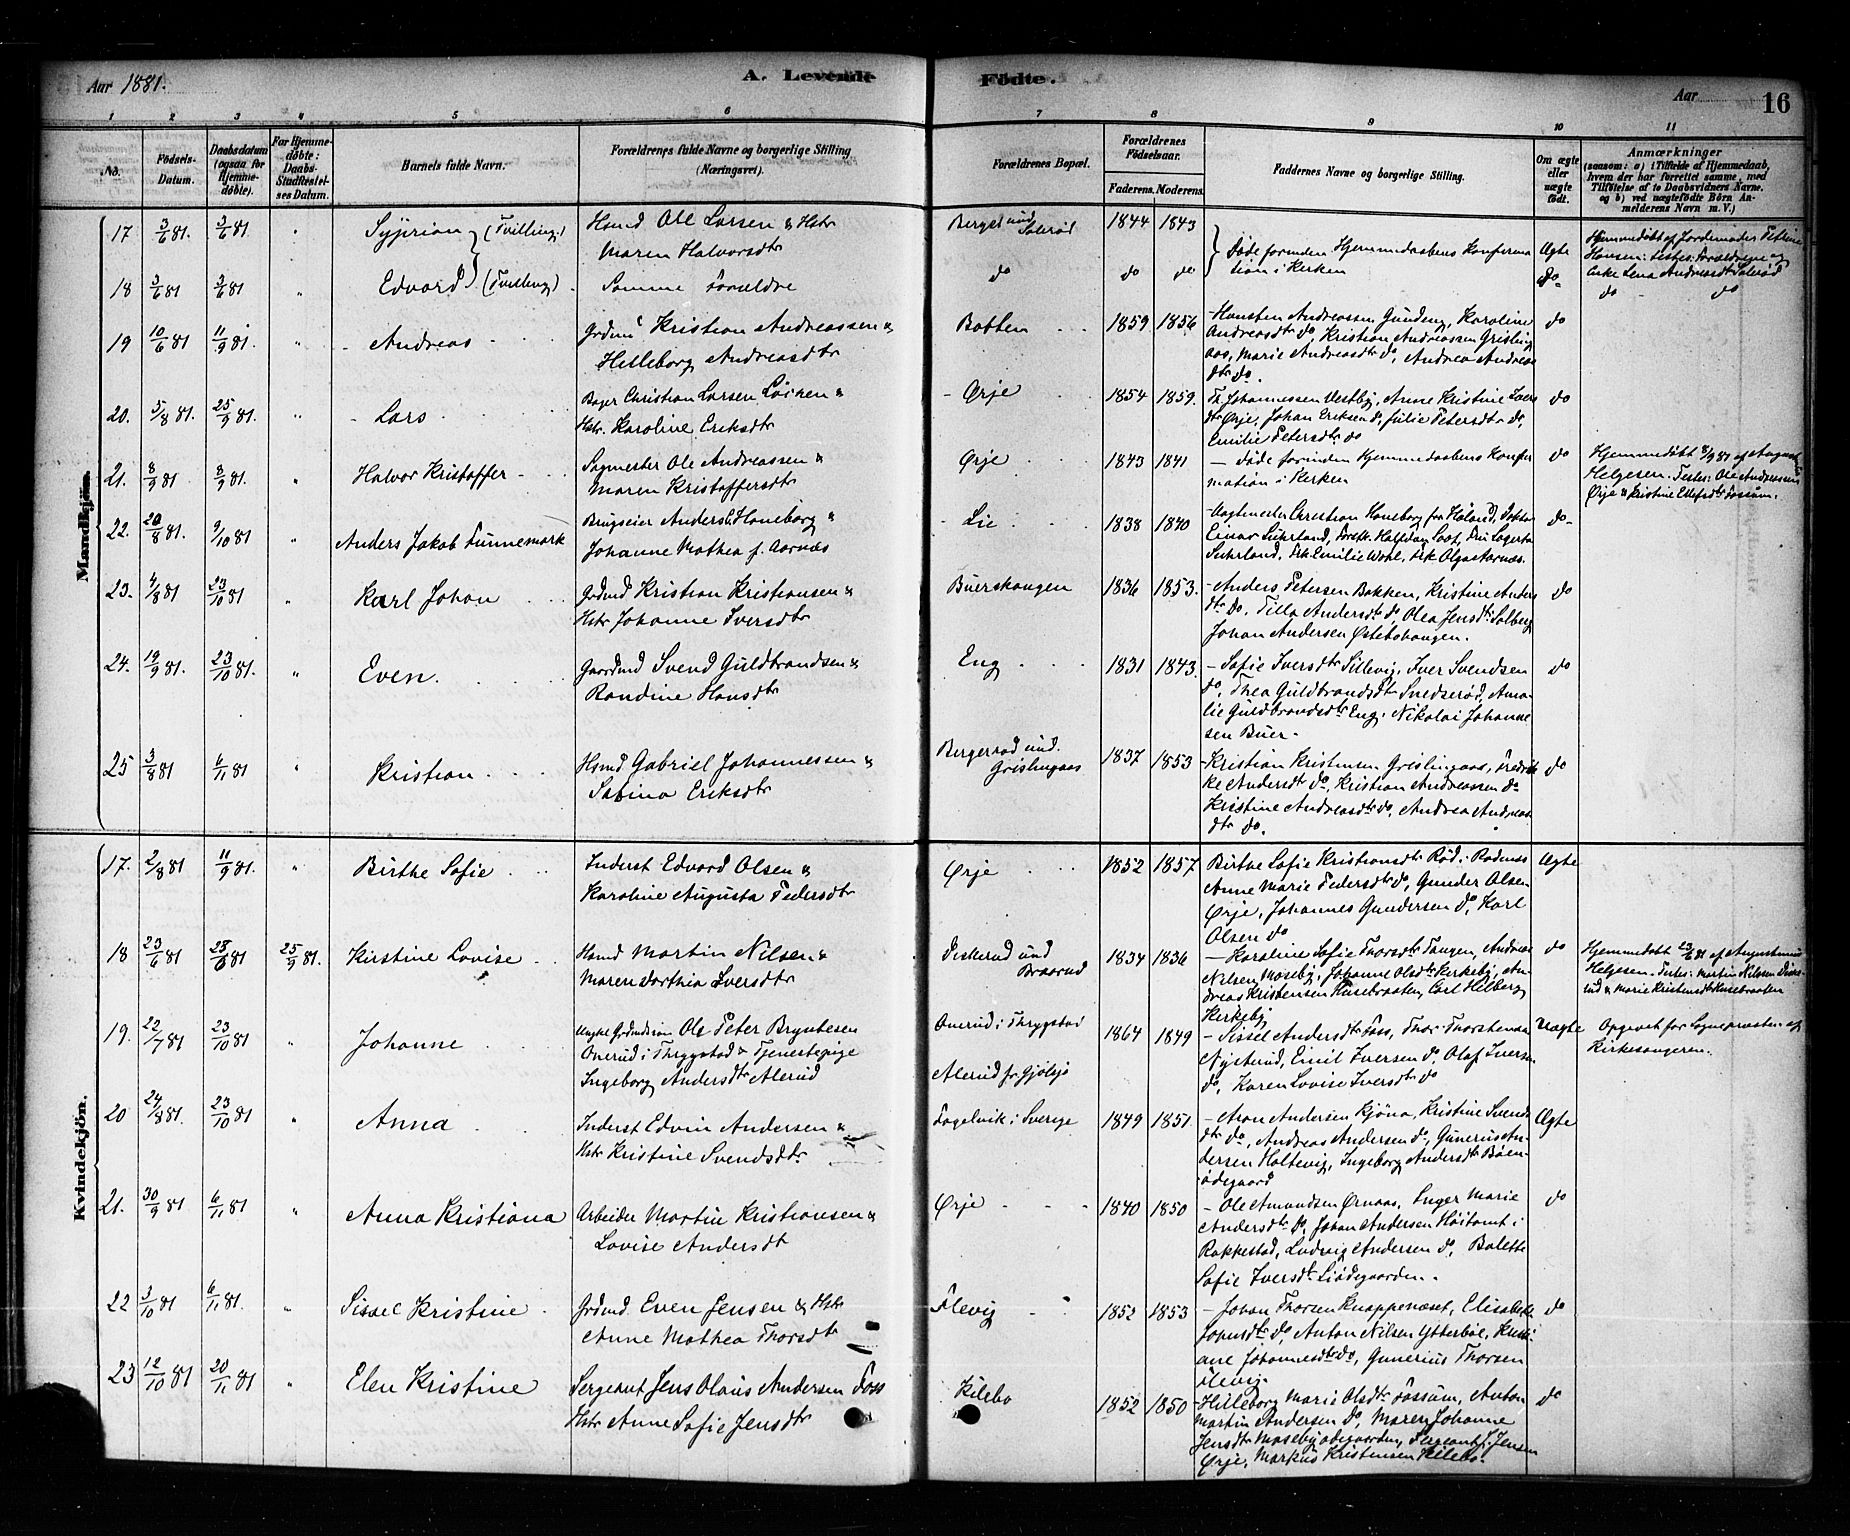 Aar 1881.
A. Levende Födte.
Aar 16
1 2 3 4 5 6 7 8 9 10 11
No.
Födsels-Datum.
Daabsdatum (ogsaa for Hjemmedöbte).
For Hjemmedöbte: Daabs-Stadfæstelses Datum.
Barnets fulde Navn.
Forældrenes fulde Navne og borgerlige Stilling (Næringsvei).
Forældrenes Bopæl.
Forældrenes Födselsaar.
Faderens. Moderens.
Faddernes Navne og borgerlige Stilling.
Om ægte eller uægte födt.
Anmærkninger
(saasom: a) i Tilfælde af Hjemmedaab, hvem der har forrettet samme, med Tilföielse af to Daabsvidners Navne. og b) ved uægtefödte Börn Anmelderens Navn m. V.)
Mandkjön.
17 3/6 81 3/6 81 " Syprian (Tvilling) Hsmd Ole Larsen & Hstr
Maren Halvorsdtr
1844 1843 Döde forinden Hjemmedaabens Konfirmation i Kirken Ægte
Hjemmedöbt af Jordemoder Petrine Hansen: Testes: Forældrene og Enke Lena Andreasdt
18 3/6 81 3/6 81 " Edvard (Tvilling) Samme Forældre do do do do do do
19 10/6 81 11/9 81. " Andreas Kristian Andreassen &
Hilleborg Andreasdtr
Botten 1859 1856
Karoline
Andreasdtr do, Kristian Andreassen Grislingaas, Marie Andreasdtr do, Andrea Andreasdtr do. do
20. 5/8 81. 25/9 81. " Lars Christian Larsen &
Hstr. Karoline Eriksdtr
Ørje 1854 1859.
Johannessen Vestby, Anne Kristine
Ørje, Johan Eriksen do, Julie Petersdtr do,
Emilie Petersdtr do do
21. 8/9 81 8/9 81. " Halvor Kristoffer Sagmester Ole Andreassen &
Maren Kristoffersdtr
Ørje 1843 1841 - Döde forinden Hjemmedaabens Konfirmation i Kirken do
Hjemmedöbt 8/9 81 af August Helgesen. Testes: Ole Andreassen Ørje & Kristine Fossum.
22. 20/8 81. 9/10 81 " Anders Jakob Tunnemark Brugseier Anders Haneborg &
Johanne Mathea f. Aarnæs
Lie 1838 1840
Christian Haneborg fra Höland, Doktor Einar
Frk Emilie Wohl, Frk Olga Aarnæs. do
23. 4/8 81 23/10 81 " Karl Johan Grdmd Kristian Kristiansen &
Hstr Johanne Iversdtr
Buershaugen 1836 1853.
Anders Petersen Bakken, Kristine Andersdtr do, Tilla Andersdtr do, Olea Jensdtr Solberg
Johan Andersen Østeböhaugen. do
24. 19/9 81. 23/10 81. " Even. Gaardmd Svend Guldbrandsen &
Randine Hansdtr
Eng 1831 1843.
Sofie Iversdtr Sillevig, Iver Svendsen
do, Thea Guldbrandsdtr Snedserød, Amalie Guldbrandsdtr Eng, Nikolai Johannesen Buer. do
25 3/8 81 6/11 81 " Kristian Hsmd Gabriel Johannesen &
Sabina Eriksdtr
und. Grislingaas 1837 1853
Kristian Kristensen Grislingaas, Fredrikke Andersdtr do, Kristian Andreassen do
Kristine Andreasdtr do, Andrea Andreasdtr do. do
Kvindekjön.
17. 2/8 81 11/9 81. " Birthe Sofie Inderst Edvard Olsen &
Karoline Augusta Pedersdtr
Ørje 1852 1857
Birthe Sofie Kristiansdtr Röd i Rödenæs
Anne Marie Pedersdtr do, Gunder Olsen
Ørje, Johannes Gundersen do, Karl
Olsen do Ægte
18 23/6 81 23/6 81 25/9 81. Kirstine Lovise Hsmd Martin Nilsen &
Maren Dorthia Iversdtr
Diskerud und Braarud 1834 1836
Karoline Sofie Thorsdtr Tangen, Andreas
Nilsen Moseby, Johanne Olsdtr Kirkeby, Andreas Kristensen Husebraaten, Carl Hilberg
Kirkeby do
Hjemmedöbt 23/6 81 af Augustinus Helgesen. Testes: Martin Nilsen Diskerud & Marie Kristensdtr Husebraaten
19. 22/7 81 23/10 81 " Johanne Ole Peter Bryntesen
Onerud i Thrygstad & Tjenestepige
Ingeborg Andersdtr Alerud
Onerud i Thrygstad
Alerud fr. Gjölsjö 1864 1849
Sissel Andersdtr Foss, Thor Thorstensen
Nystuud, Emil Iversen do, Olaf Iversen
do, Karen Lovise Iversdtr do Uægte
Opgivet for Sognepræsten af Kirkesangeren.
20 24/8 81. 23/10 81 " Anna Inderst Edvin Andersen &
Hstr Kristine Svendsdtr
Fagelvik i Sverige 1849 1851.
Aron Andersen Kjöna, Kristine Svendsdtr do, Andreas Andersen do, Gunerius Andersen Holtevig, Ingeborg Andersdtr Böenödegaard Ægte
21. 30/9 81 6/11 81 " Anna Kristiana Arbeider Martin Kristiansen &
Lovise Andersdt
Ørje 1840 1850
Ole Amundsen Ørnaas, Inger Marie
Andersdtr do, Johan Andersen Höitomt i
Rakkestad, Ludvig Andersen do, Balette
Sofie Iversdtr Liödegaarden. do
22 3/10 81 6/11 81. " Sissel Kristine Grdmd. Even Jensen & Hstr
Anne Mathea Thorsdtr
Flevig 1852 1853
Johan Thorsen Knappenæset, Elisabeth
do, Anton Nilsen Ytterböl,
Johannesdtr do, Gunerius Thorsen
Flevig. do
23 12/10 81 20/11 81 " Elen Kristine Sergeant Jens Olaus Andersen Foss
Hstr Anne Sofie Jensdtr
Kilebo 1852 1850
Hilleborg Marie Olsdtr Fossum, Anton
Martin Andersen do, Maren Johanne
Jensdtr Mosebyödegaarden, Sergeant J. Jensen
Ørje, Markus Kristensen Kilebo. do